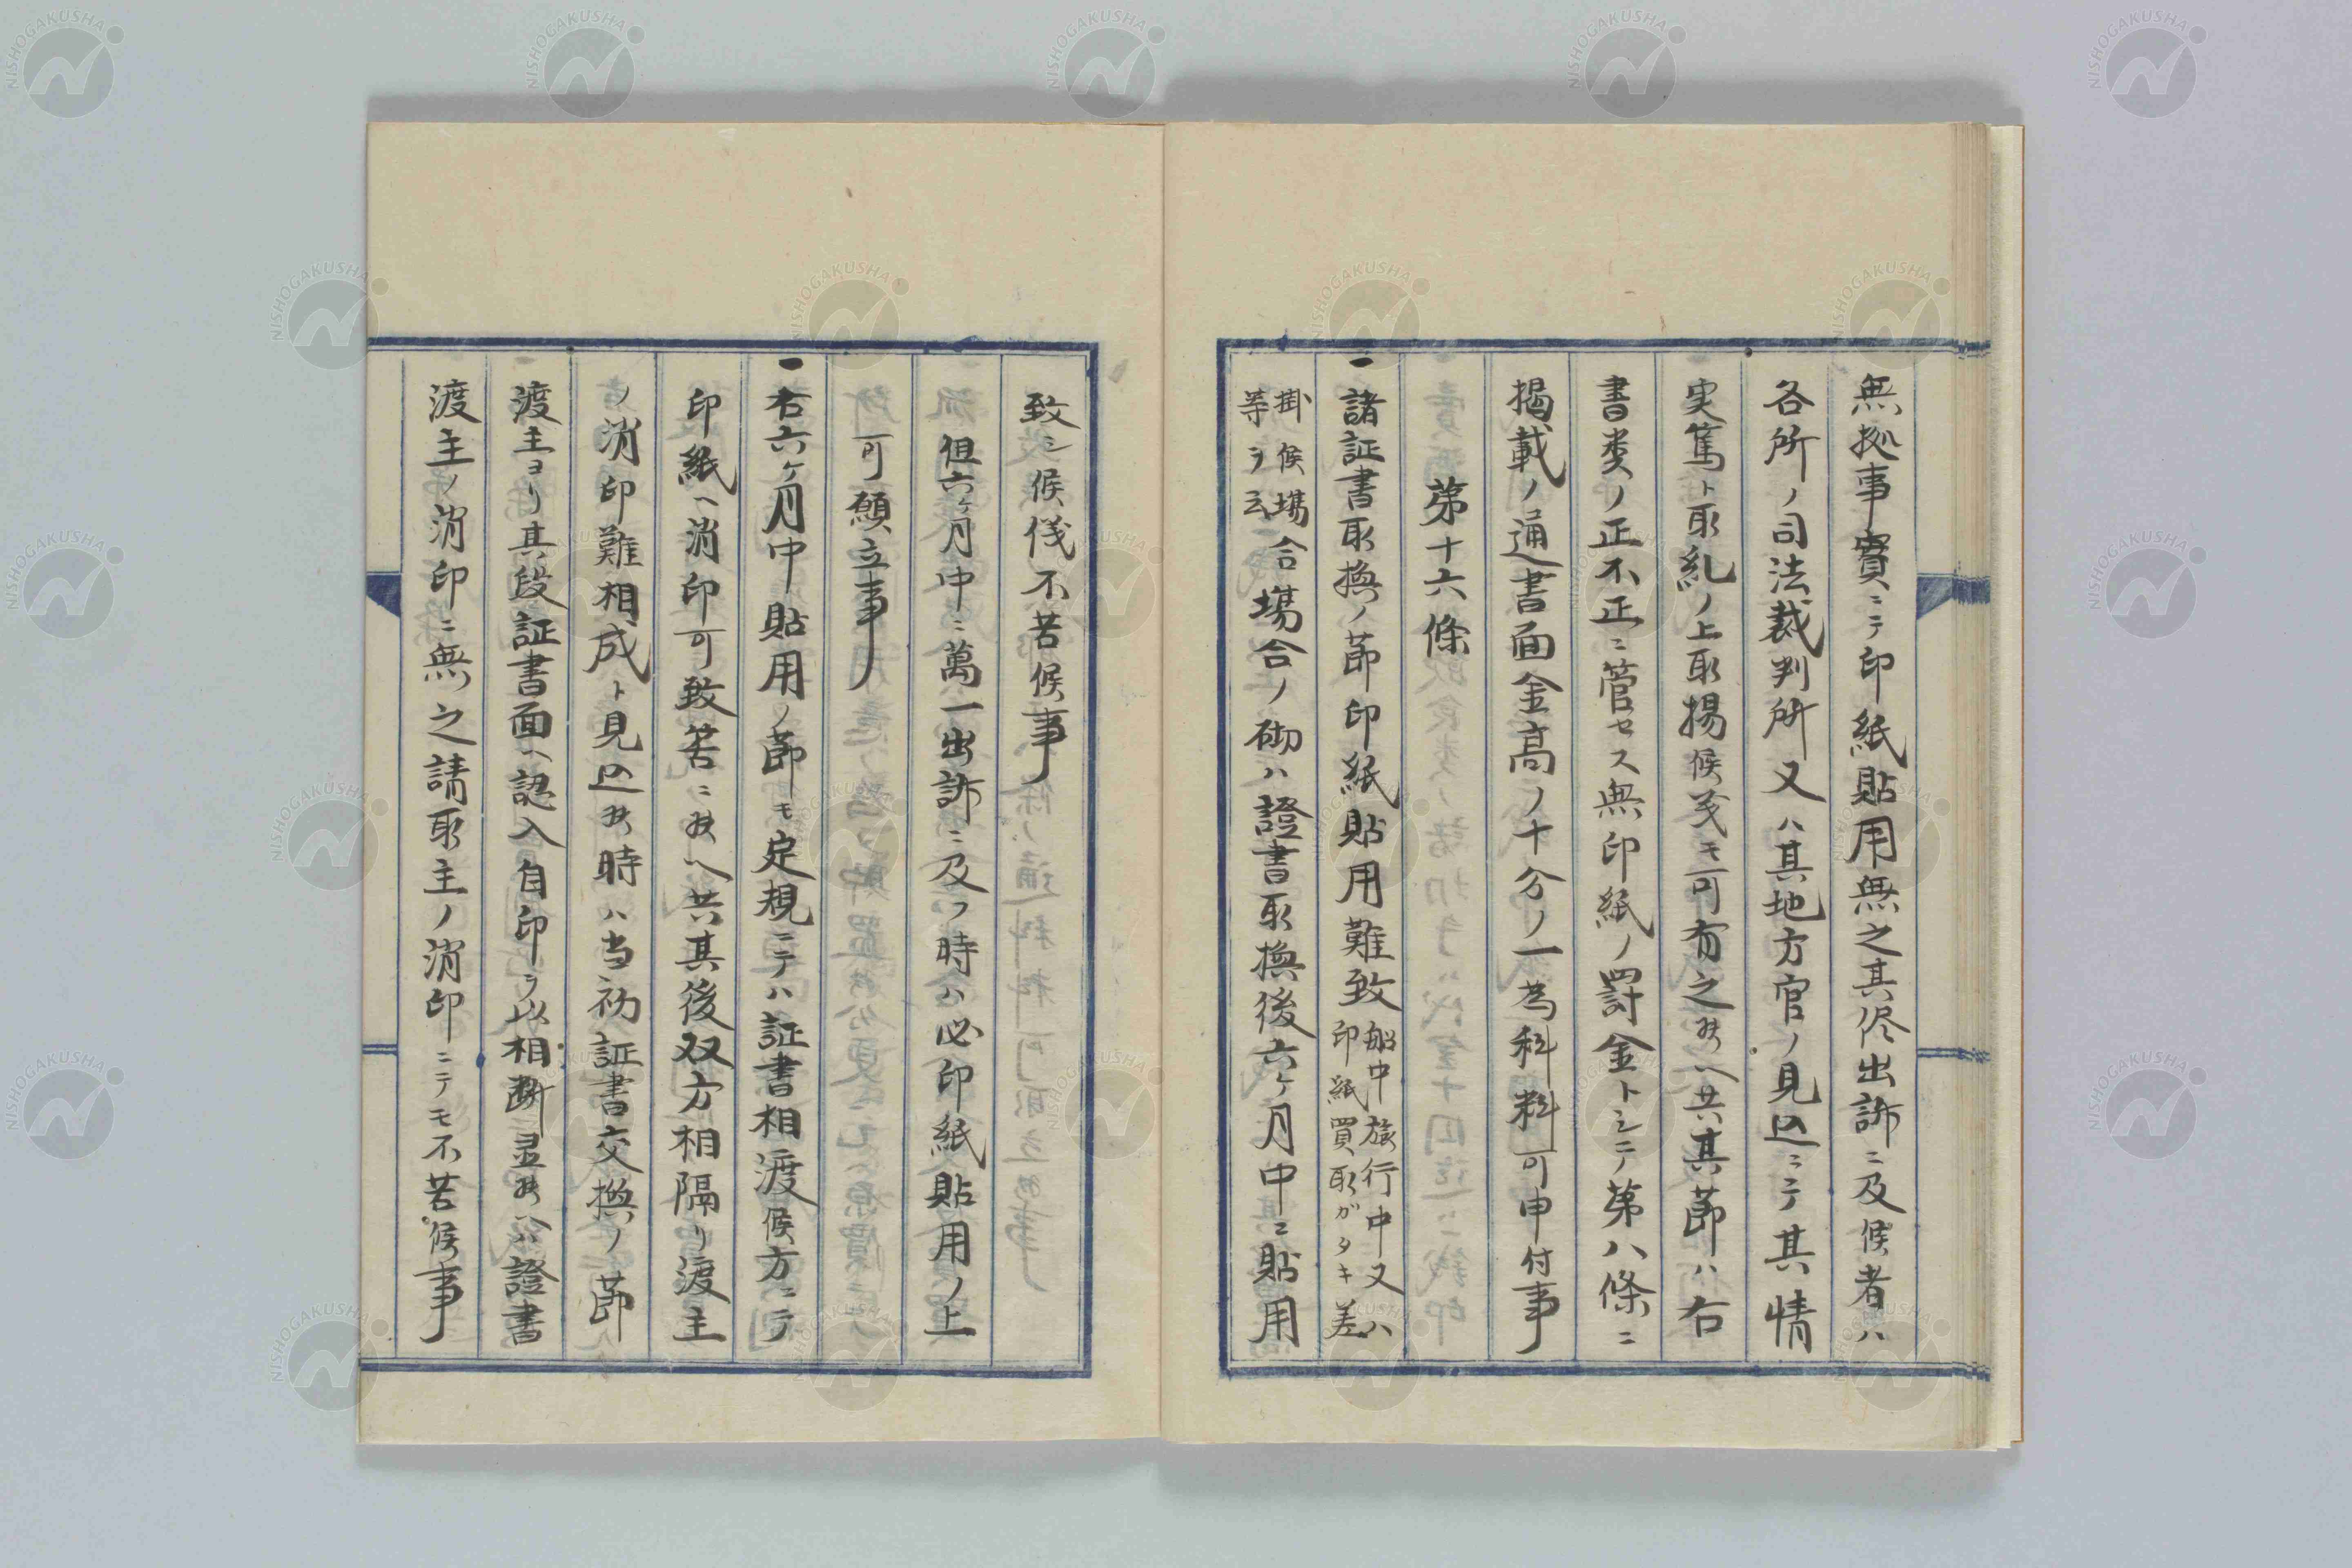 無拠事實ニテ印紙貼用無之其侭出訴ニ及候者ハ
各所ノ司法裁判所又ハ其地方官ノ見込ニテ其情
実篤ト取糺ノ上取揚候義モ可有之尤共其節ハ右
書类ノ正不正ニ管セス無印紙ノ罰金トシテ第八條ニ
掲載ノ通書面金高ノ十分ノ一為科料可申付事
第十六條
一諸証書取換ノ節印紙貼用難致船中旅行中又ハ
印紙買取ガタキ差
掛候場合
等ヲ云
場合ノ砌ハ證書取換後六ケ月中ニ貼用
致シ候儀不苦候事
但六ケ月中ニ萬一出訴ニ及フ時ハ必印紙貼用ノ上
可願立事
一右六ケ月中貼用ノ節モ定規ニテハ証書相渡候方ニテ
印紙ヘ消印可致筈ニ候ヘ共其後双方相隔リ渡主
ノ消印難相成ト見込候時ハ当初証書交換ノ節
渡主ヨリ其段証書面ヘ認入自印ヲ以相断置候ヘハ證書
渡主ノ消印ニ無之請取主ノ消印ニテモ不苦候事
NISHOGAKUSHA